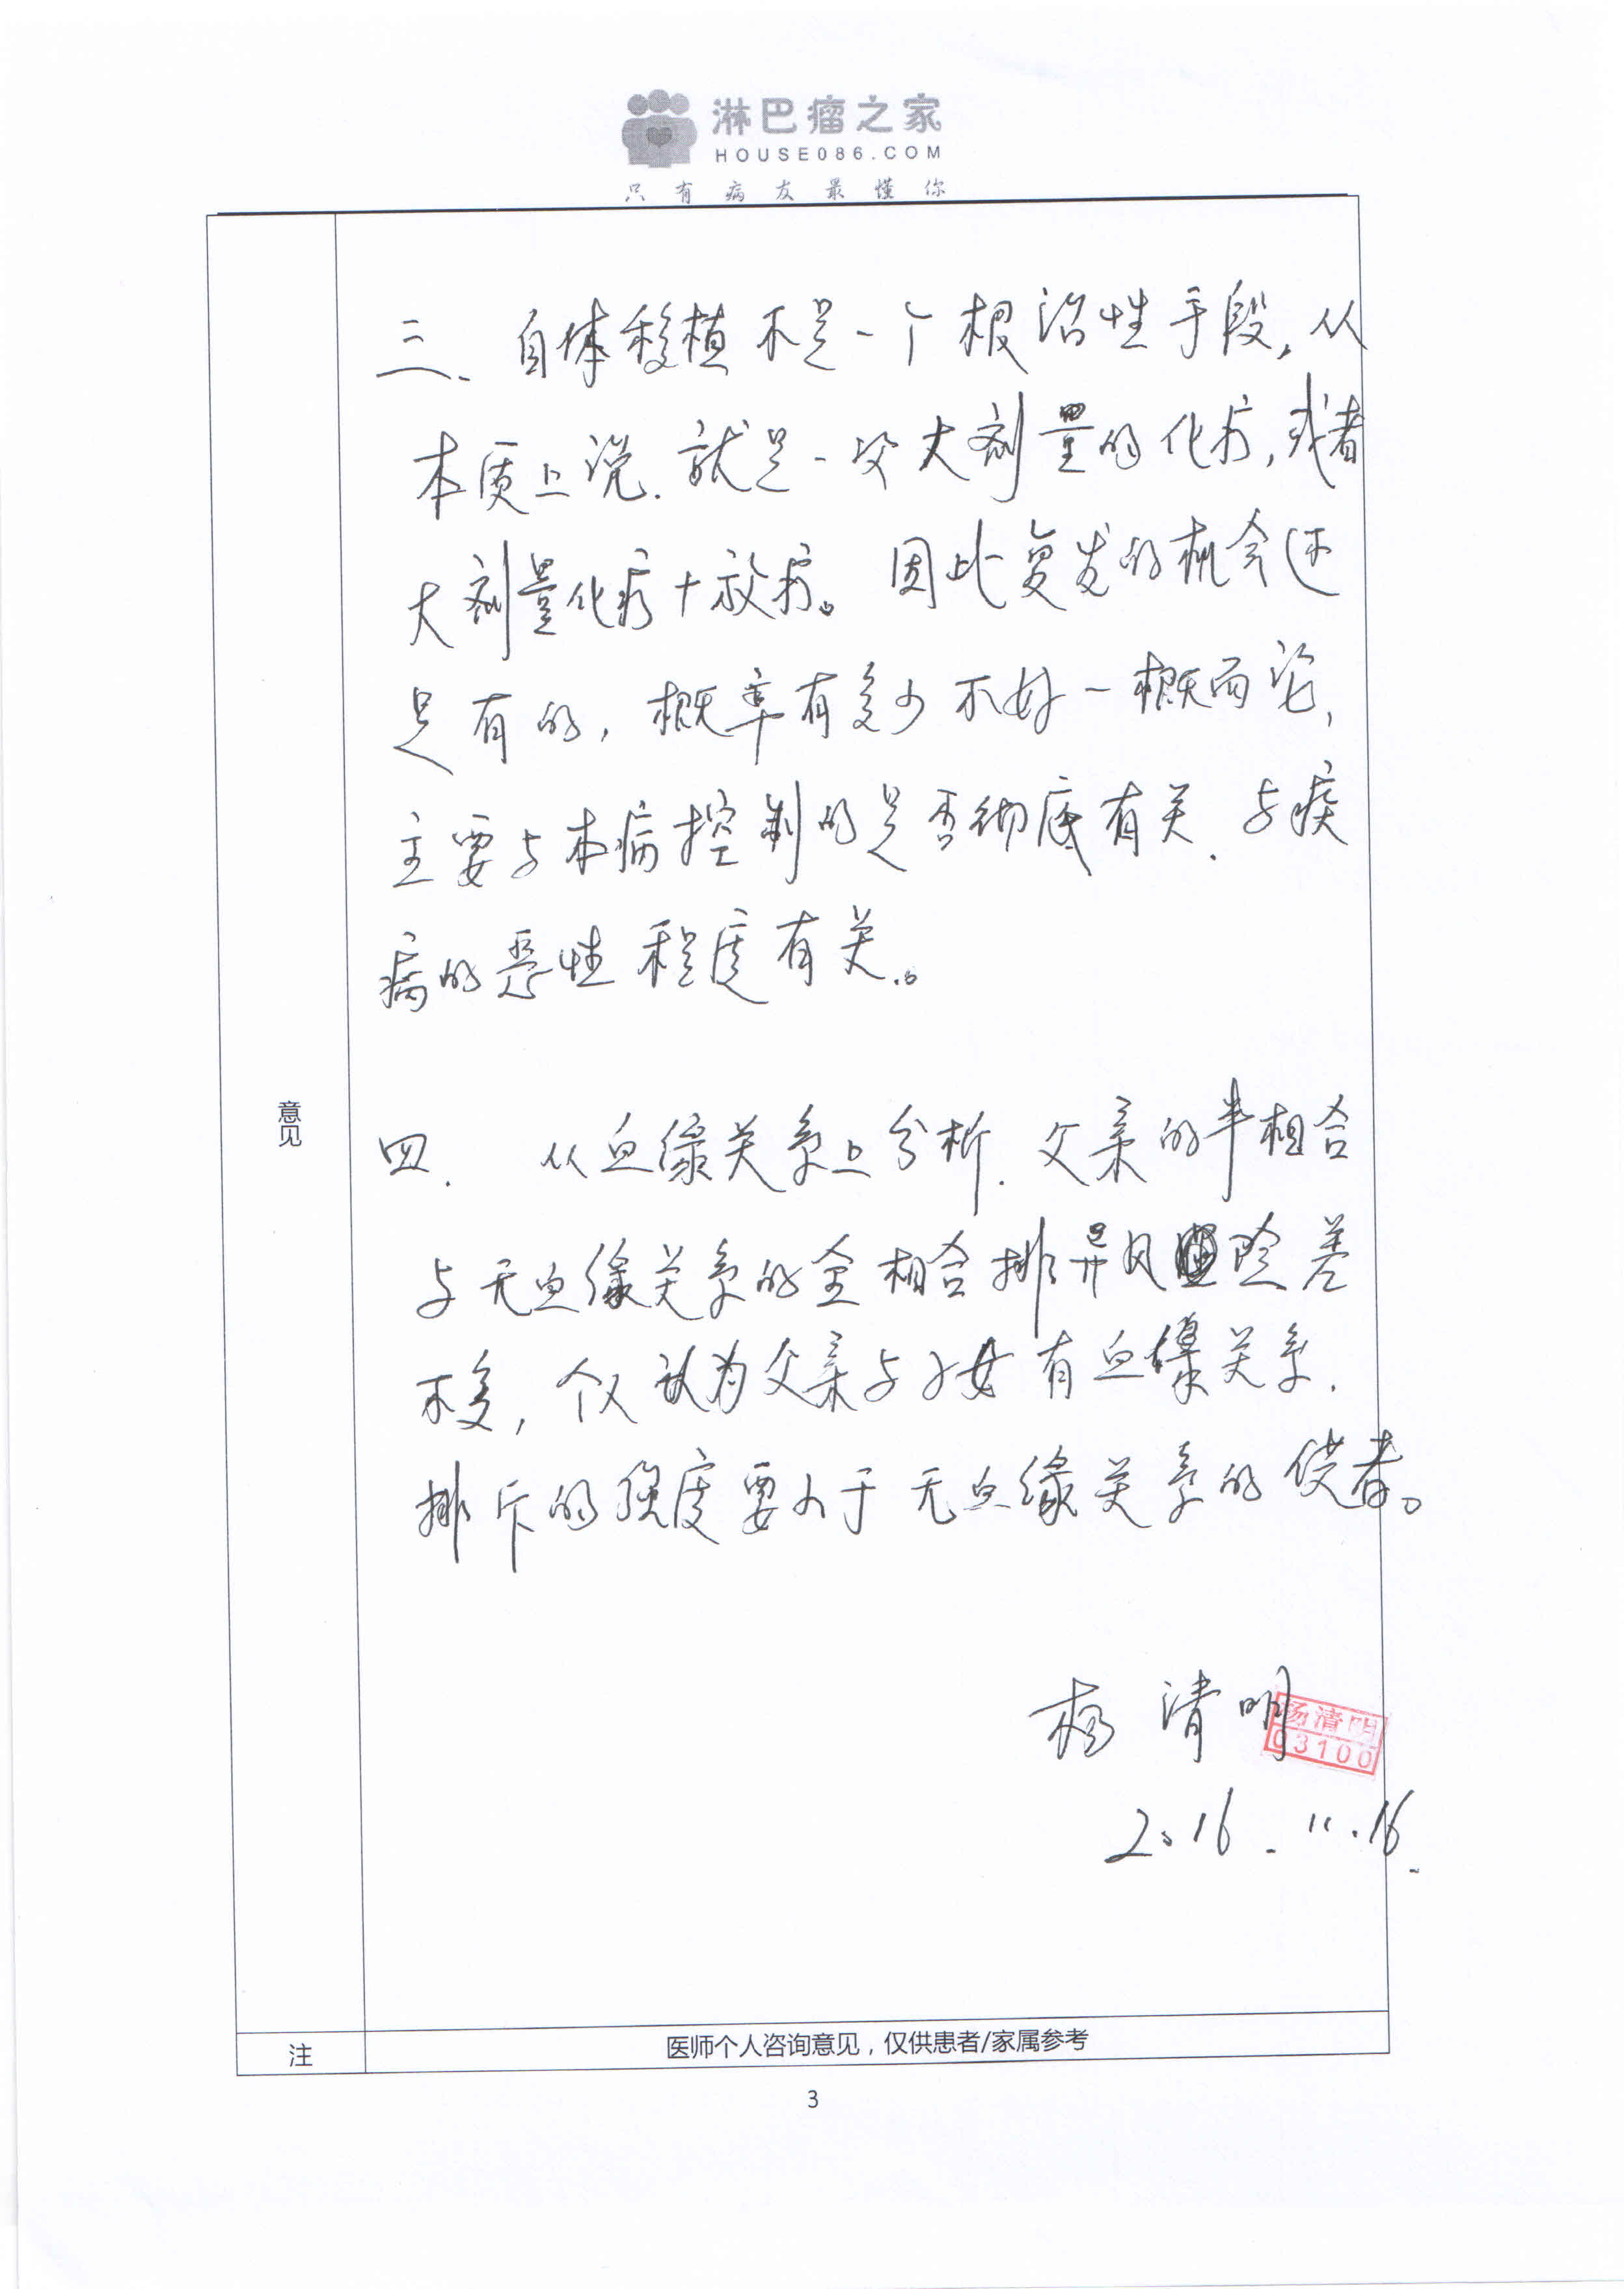 淋巴瘤之家
HOUSE086.COM
只有病友最懂你
意见
三、自体移植不是一个根治性手段,从
本质上说.就是一次大剂量的化疗,或者
大剂量化疗+放疗。因此复发的机会还
是有的,概率有多少不好一概而论,
主要与本病控制的是否彻底有关.与疾
病的恶性程度有关。
四.从血缘关系上分析.父亲的半相合
与无血缘关系的全相合排异风险差
不多,个人认为父亲与子女有血缘关系.
排斥的强度要小于无血缘关系的供者。
杨清明
杨清明
03100
2016.11.16.
注
医师个人咨询意见,仅供患者/家属参考
3